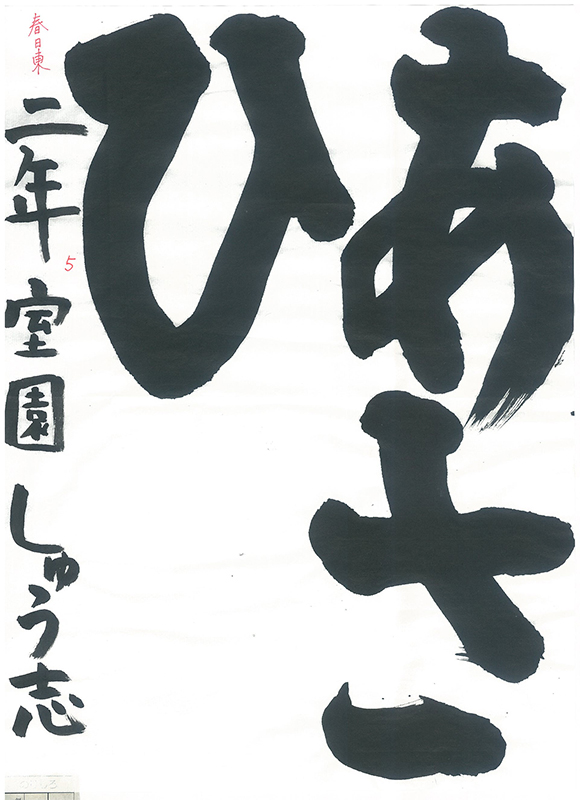 あさ
ひ
春日東
二年 室園 しゅう志
5